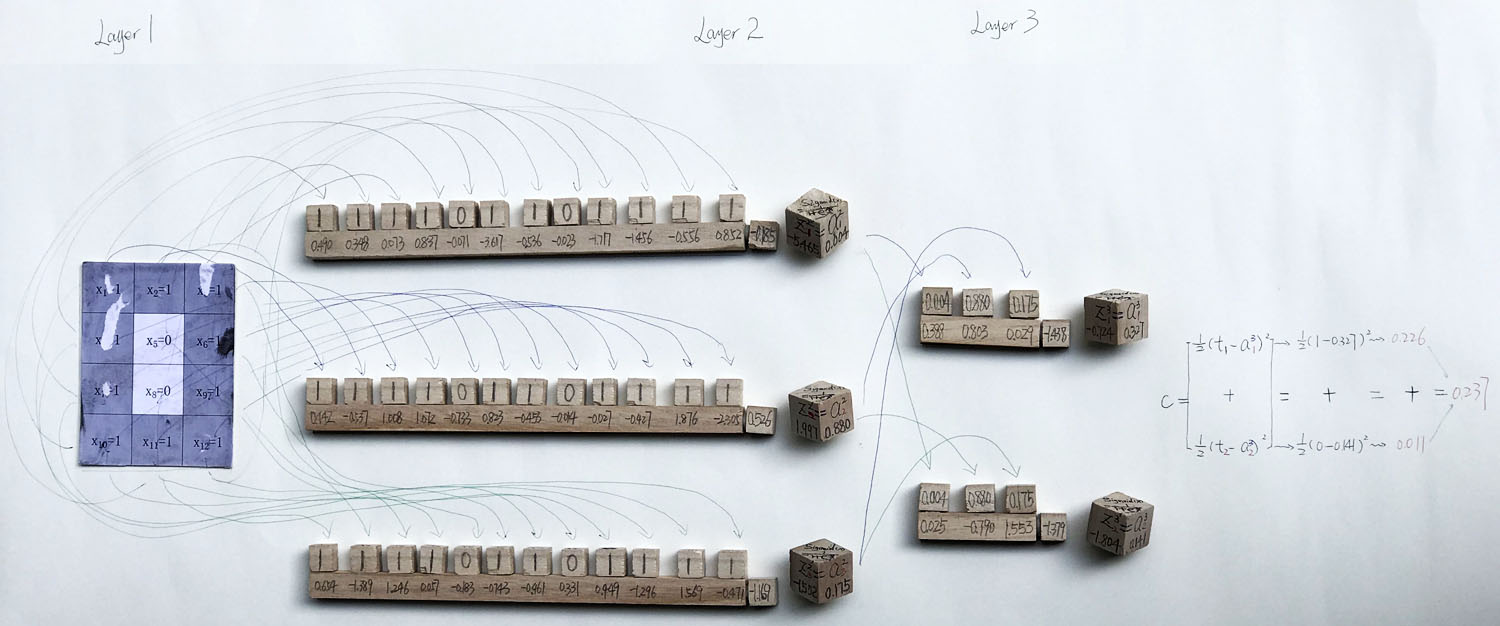 Layer 1
Layer 2
Layer 3
x₂=1
x₅=0
x₆=1
x₈=0
x₁₀=1
x₁₁=1
x₁₂=1
1 1 1 1 0 1 1 0 1 1 1 1
0.490 0.348 0.073 0.837 -0.071 -3.617 -0.536 -0.023 -1.717 -1.456 -0.556 0.852 -0.185
Z²₁ = a²₁
-5.465 0.004
1 1 1 1 0 1 1 0 1 1 1 1
0.442 -0.537 1.008 1.072 -0.733 0.823 -0.453 -0.014 -0.027 -0.427 1.876 -2.305 0.526
Z²₂ = a²₂
1.997 0.880
1 1 1 1 0 1 1 0 1 1 1 1
0.654 -1.389 1.246 0.057 -0.183 -0.743 -0.461 0.331 0.449 -1.296 1.569 -0.471 -1.169
Z²₃ = a²₃
0.175
0.004 0.880 0.175
0.388 0.803 0.029 -1.438
Z³₁ = a³₁
-0.724 0.327
0.004 0.880 0.175
0.025 -0.790 1.553 -1.379
Z³₂ = a³₂
-1.804 0.141
½(t₁-a³₁)² → ½(1-0.327)² 0.226
C = + = + = + = 0.237
½(t₂-a³₂)² → ½(0-0.141)² 0.011